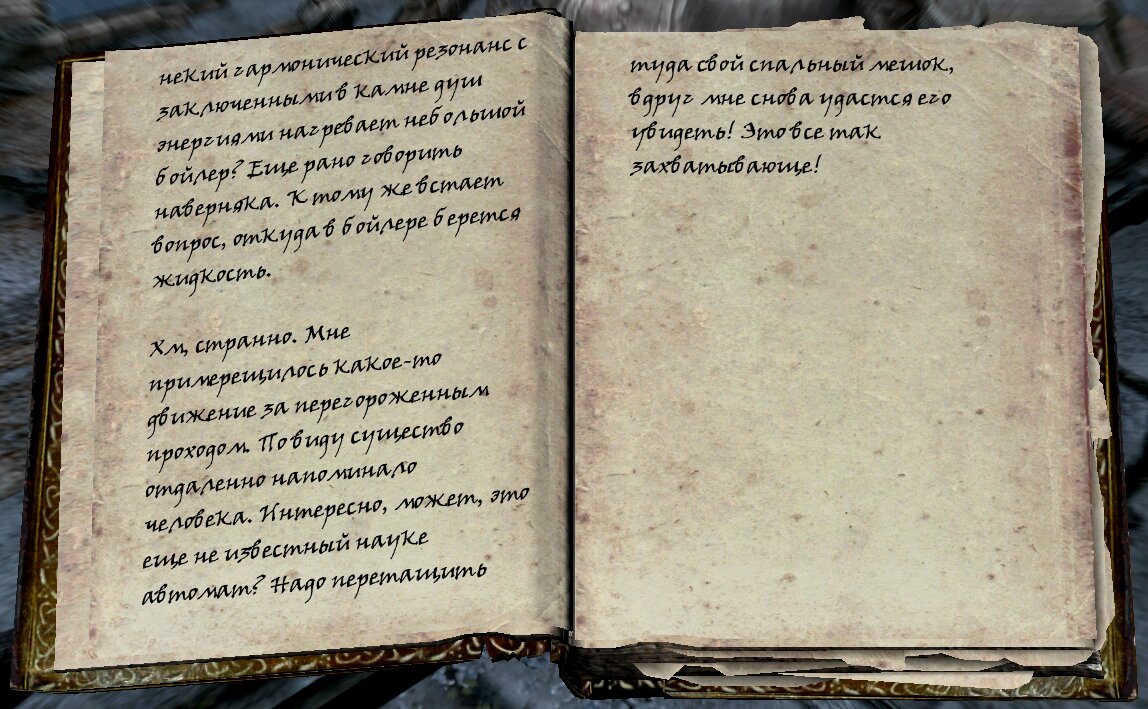 некий гармонический резонанс с
заключенными в камне душ
энергиями нагревает небольшой
бойлер? Еще рано говорить
наверняка. К тому же встает
вопрос, откуда в бойлере берется
жидкость.
Хм, странно. Мне
примерещилось какое-то
движение за перегороженным
проходом. По виду существо
отдаленно напоминало
человека. Интересно, может, это
еще не известный науке
автомат? Надо перетащить
туда свой спальный мешок,
вдруг мне снова удастся его
увидеть! Это все так
захватывающе!